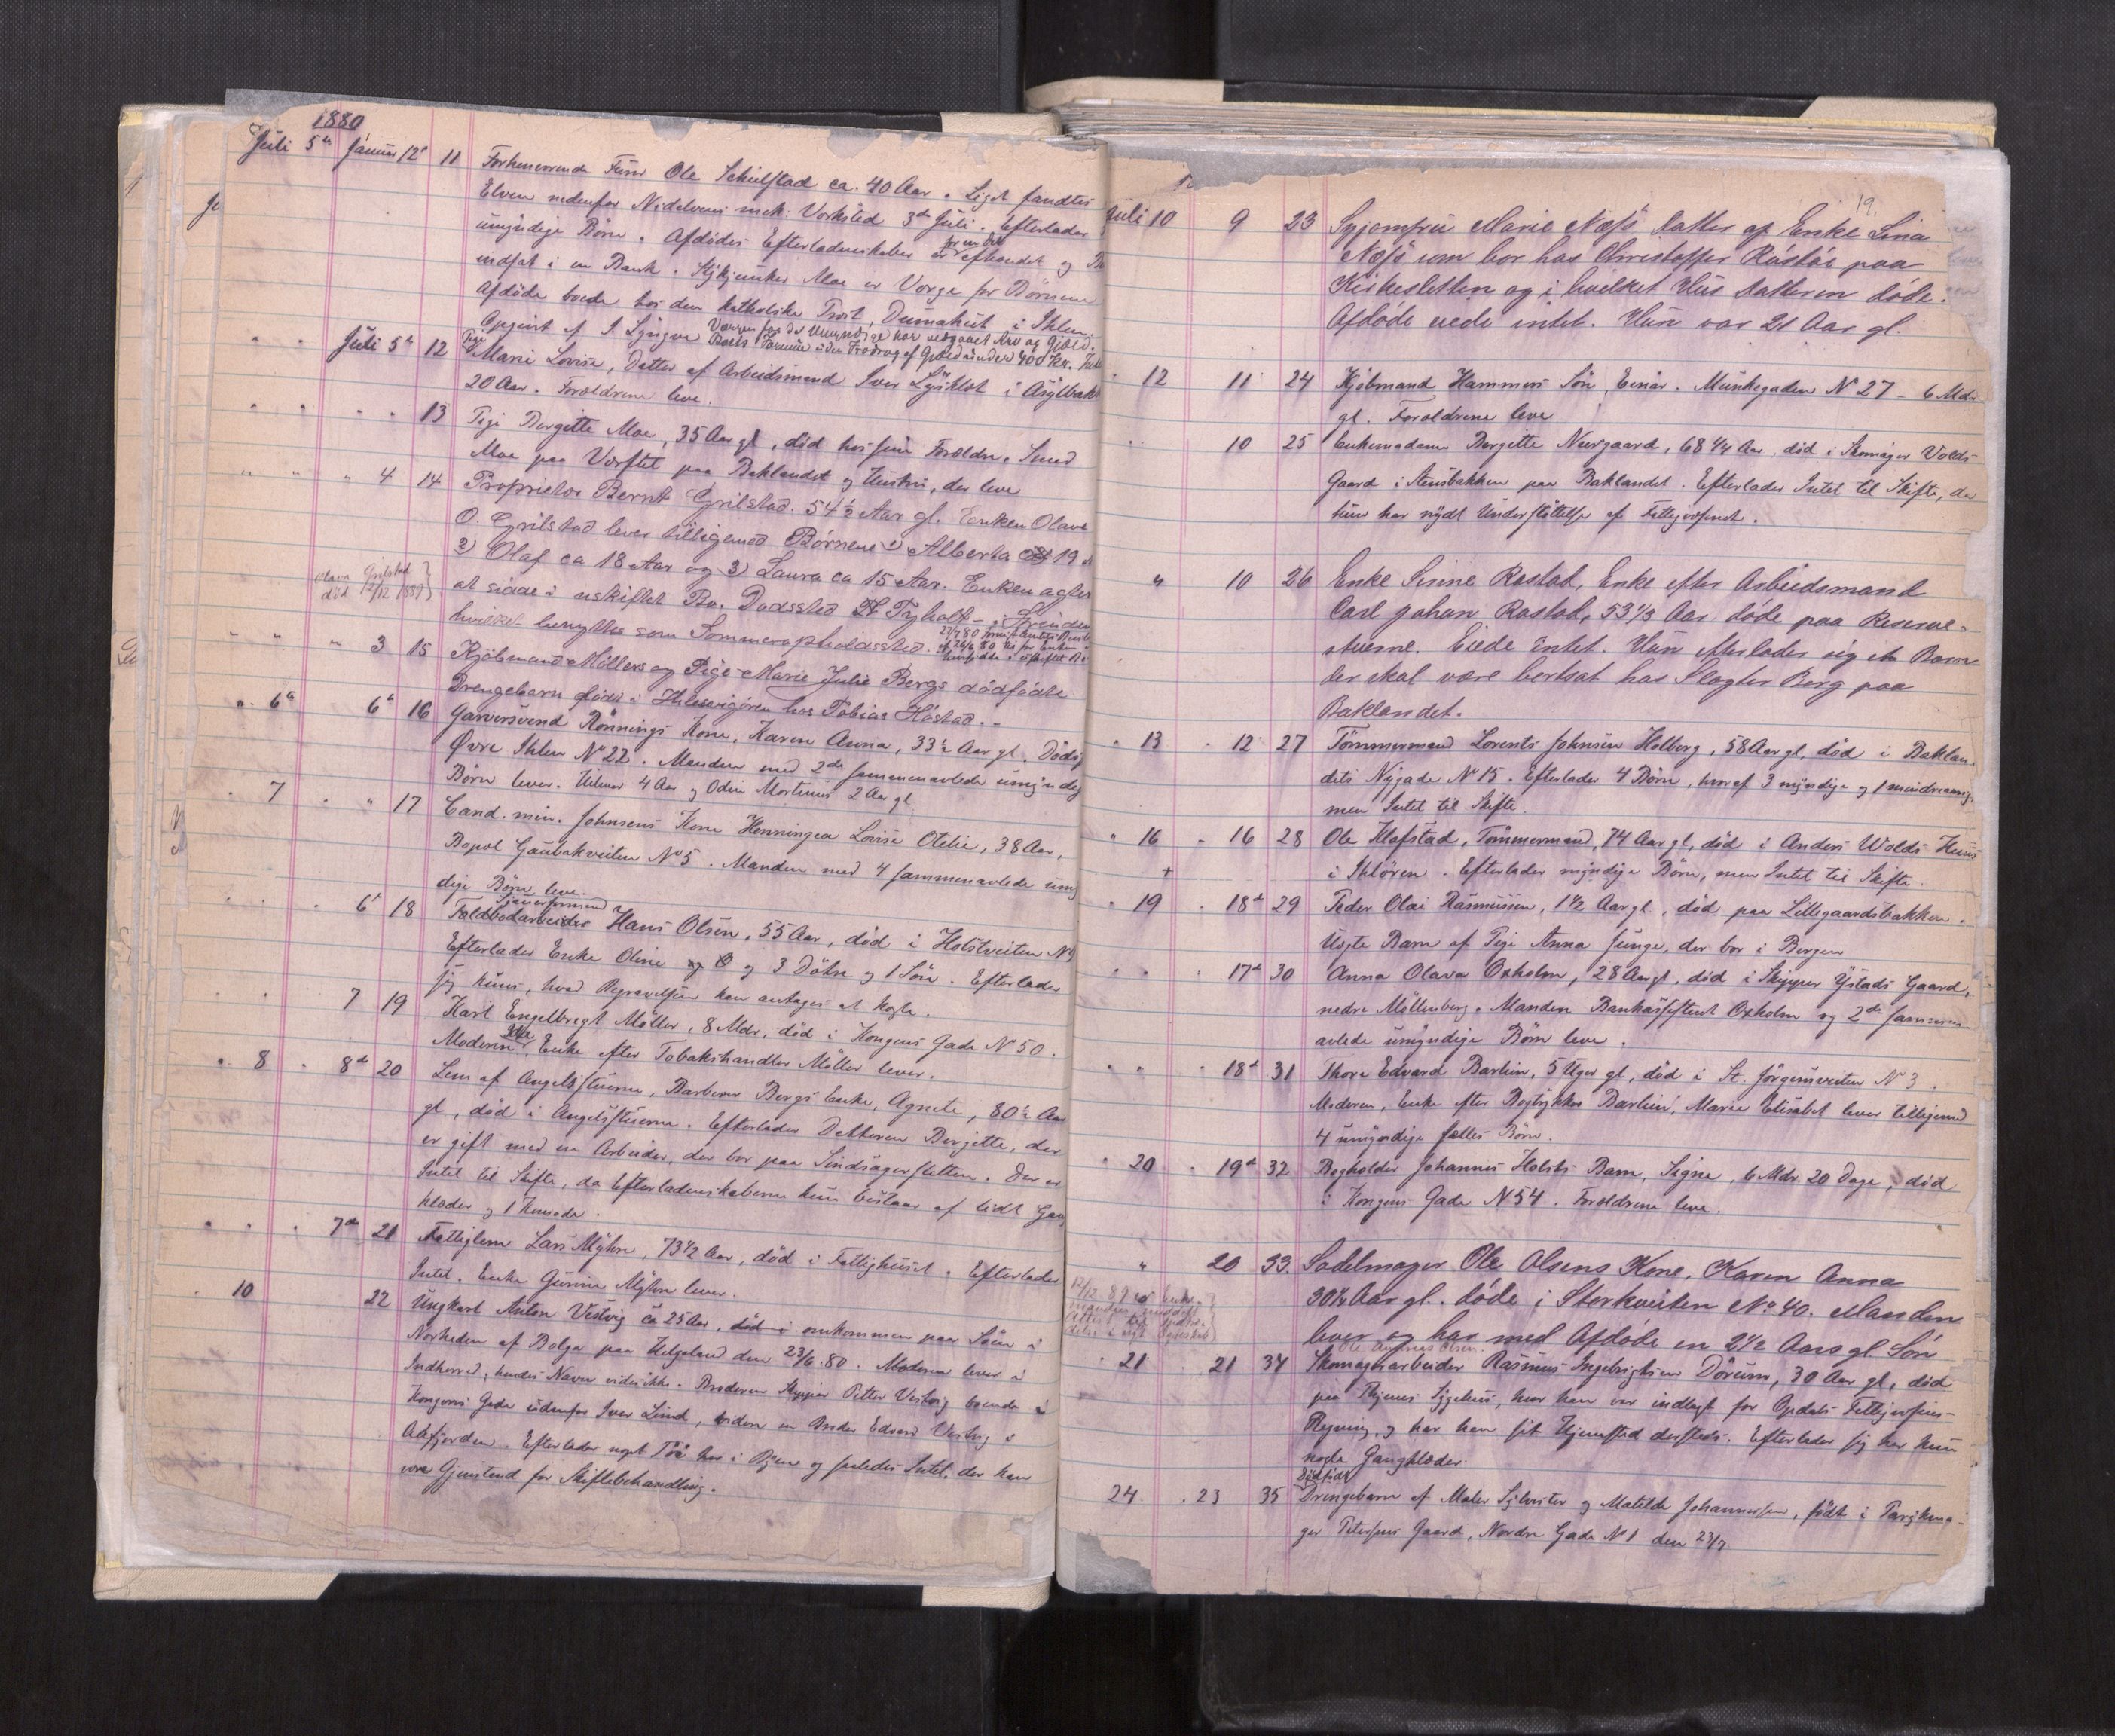 1880
Juli 5te Januar 12te 11 Forhenværende Furer Ole Schielstad ca. 40 Aar. Liget fandtes
Elven nedenfor Nidelvens mek: Værksted 3de Juli. Efterlader
umyndige Børn. Afdødes Efterladenskaber er afhændet og
indsat i en Bank. Moe er Værge for Børnene
Afdøde boede hos den katholske Præst, Dumahut i Ihlen.
Opgivet af I. Lyngve
Boets Formue uden Fradrag af Gjæld under 400 Kr.
Juli 5te 12 Pige Marie Lovise, Datter af Arbeidsmand Iver Lysklæt i Asylbakk
20 Aar. Forældrene leve.
13 Pige Bergitte Moe, 35 Aar gl, død hos sine Forældre. Smed
Moe paa Værftet paa Baklandet og Hustru, der leve
4 14 Proprietær Bernt Grilstad. 54½ Aar gl. Enken Olava
O. Grilstad lever tilligemed Børnene 1) Alberta 19
2) Olaf ca 18 Aar og 3) Laura ca 15 Aar. Enken agter
Olava Grilstad
død 12/12 1887
at sidde i uskiftet Bo. Dødssted Tyholt - i Strinden
hvilket benyttes som Sommeropholdssted.
3 15 Kjøbmand Møllers og Pige Marie Julie Bergs dødfødte
Drengebarn fødtes i Ihlesvigøren hos Tobias Høstad. -
6te 6te 16 Garversvend Rønnings Kone, Karen Anna, 33½ Aar gl. Døds
Øvre Ihlen No 22. Manden med 2de sammenavlede umyndig
Børn lever. Hilmar 4 Aar og Odin Martinus 2 Aar gl
7 " 17 Cand. min. Johnsens Kone Henningea Lovise Otelie, 38 Aar,
Bopæl Gaubækveiten No 5. Manden med 4 sammenavlede umyn
dige Børn leve.
Sjouerformand
6te 18 Toldbodarbeider Hans Olsen, 55 Aar, død i Holstveiten No
Efterlader Enke Oline og 3 Døtre og 1 Søn. Efterlader
sig kuns, hvad Begravelsen kan antages at koste.
7 19 Karl Engelbregt Møller, 8 Mdr, død i Kongens Gade N 50.
Moderen, Enke efter Tobakshandler Møller lever.
8 8de 20 Lem af Angelsstuerne, Barberer Bergs Enke, Agnete, 80½ Aar
gl, død i Angelsstuerne. Efterlader Datteren Bergitte, der
er gift med en Arbeider, der bor paa Sindsagerslétten. Der er
Intet til Skifte, da Efterladenskaberne kun bestaar af lidt Gang
klæder og 1 Komode.
7de 21 Fattiglem Lars Myhre, 73½ Aar, død i Fattighuset. Efterlader
Intet. Enke Gurine Myhre lever.
10 22 Ungkarl Anton Vestvig ca 25 Aar, død i omkommen paa Søen i
Nærheden af Bolga paa Helgeland den 23/6 80. Moderen lever i
Indherred, hendes Navn vides ikke. Broderen Skipper Petter Vestvig boende i
Kongens Gade udenfor Iver Lind, viden en Broder Edvard Vestvig i
Aafjorden. Efterlader noget Tøi her i Byen og saaledes Intet, der kan
være Gjenstand for Skiftebehandling.
19.
Juli 10 9 23 Syjomfru Marie Næss Datter af Enke Lina
Næss som bor hos Christoffer Røstøe paa
Kirkesletten og i hvilket Hus Datteren døde.
Afdøde eiede intet. Hun var 21 Aar gl.
12 11 24 Kjøbmand Hammers Søn, Einar. Munkegaden N 27 - 6 Mdr
gl. Forældrene leve
10 25 Enkemadame Bergitte Neergaard, 68 1/4 Aar, død i Skomager Volds
Gaard i Steinbakken paa Baklandet. Efterlader Intet til Skifte, da
hun har nydt Understøttelse af Fattigvæsenet.
" 10 26 Enke Serine Rostad, Enke efter Arbeidsmand
Carl Johan Rostad, 53 1/3 Aar døde paa Reserve-
stuerne. Eiede Intet. Hun efterlader sig et Barn
der skal være bortsat hos Slagter Berg paa
Baklandet.
13 12 27 Tømmermand Lorents Johnsen Holberg, 58 Aar gl, død i Baklan-
dets Nygade No 15. Efterlader 4 Børn, hvoraf 3 myndige og 1 mindreaarig
men Intet til Skifte.
16 16 28 Ole Klafstad, Tømmermand, 74 Aar gl, død i Anders Wolds Huus
+ i Ihløren. Efterlader myndige Børn, men Intet til Skifte.
19 18de 29 Peder Olai Rasmussen, 1½ Aar gl, død paa Lillegaardsbakken.
Uægte Barn af Pige Anna Junge, der bor i Bergen
17de 30 Anna Olava Oxholm, 28 Aar gl, død i Skipper Ystads Gaard,
nedre Møllenberg. Manden Bankassistent Oxholm og 2de sammen-
avlede umyndige Børn leve.
18de 31 Thora Edvard Barlien, 5 Uger gl, død i St. Jørgensveiten N 3.
Moderen, Enke efter Bogtrykker Barlien, Marie Elisabet lever tilligemed
4 umyndige fælles Børn.
20 19de 32 Bogholder Johannes Holsts Barn, Signe, 6 Mdr. 20 Dage, død
i Kongens Gade N 54. Forældrene leve.
" 20 33. Sadelmager Ole Olsens Kone, Karen Anna
30¼ Aar gl. døde i Storkveiten No 40. Manden
lever og har med Afdøde en 2½ Aars gl Søn
21 21 34 Skomagerarbeider Rasmus Ingebrigtsen Dørum, 30 Aar gl, død
paa Byens Sygehus, hvor han var indlagt for Opdals Fattigvæsens
Regning, og har han sit Hjemsted dersteds. Efterlader sig her kun
nogle Gangklæder.
Dødfødt
24 23 35 Drengebarn af Maler Sylvester og Matilde Johannessen, født i Paryma-
ger Petersens Gaard, Nordre Gade No 1 den 23/7